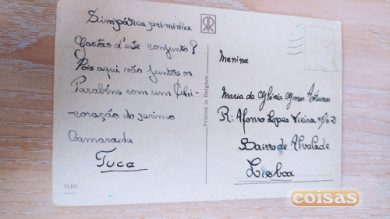 Simpática priminha
Gostas d'este conjunto?
Pois aqui vão juntos os
Parabéns com um Chi-
coração do primo
Camarada
Tuca
Printed in Belgium
Menina
Maria da Glória
R: Afonso Lopes Vieira
Bairro de Alvalade
Lisboa
coisas